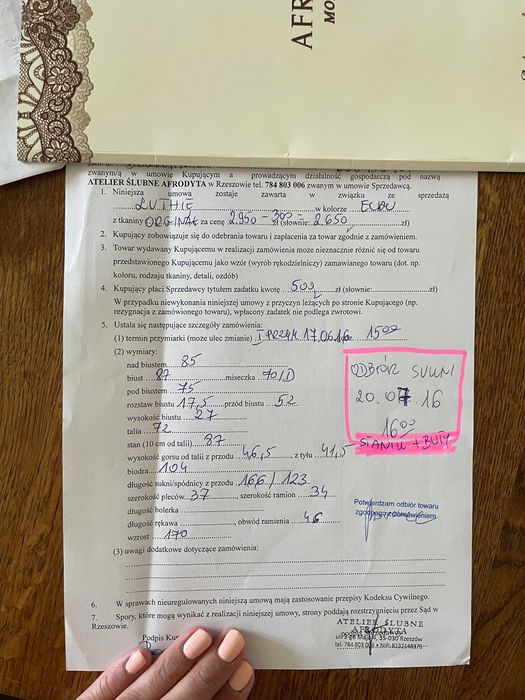 AFR
MO
zwanym/ą w umowie Kupującym a prowadzącym działalność gospodarczą pod nazwą
ATELIER ŚLUBNE AFRODYTA w Rzeszowie tel. 784 803 006 zwanym w umowie Sprzedawcą.
1. Niniejsza umowa zostaje zawarta w związku ze sprzedażą
RUTHIE w kolorze ECRU
z tkaniny ORGINAŁ za cenę 2.950 - 300 = zł (słownie: 2.650 zł)
2. Kupujący zobowiązuje się do odebrania towaru i zapłacenia za towar zgodnie z zamówieniem.
3. Towar wydawany Kupującemu w realizacji zamówienia może nieznacznie różnić się od towaru
przedstawionego Kupującemu jako wzór (wyrób rękodzielniczy) zamawianego towaru (dot. np.
koloru, rodzaju tkaniny, detali, ozdób)
4. Kupujący płaci Sprzedawcy tytułem zadatku kwotę 500 zł (słownie: zł)
W przypadku niewykonania niniejszej umowy z przyczyn leżących po stronie Kupującego (np.
rezygnacja z zamówionego towaru), wpłacony zadatek nie podlega zwrotowi.
5. Ustala się następujące szczegóły zamówienia:
(1) termin przymiarki (może ulec zmianie) I PRZYM 17.06.16 15 00
(2) wymiary:
nad biustem 85
biust 87 miseczka 70/D
pod biustem 75
rozstaw biustu 17,5 przód biustu 52
wysokość biustu 27
talia 72
stan (10 cm od talii) 87
wysokość gorsu od talii z przodu 46,5, z tyłu 41,5
biodra 104
długość sukni/spódnicy z przodu 166 / 123
szerokość pleców 37, szerokość ramion 34
długość bolerka
długość rękawa, obwód ramienia 46
wzrost 170
ODBIÓR SUKNI
20.07.16
16 00
STANIK + BUTY
Potwierdzam odbiór towaru
zgodnego z zamówieniem
(3) uwagi dodatkowe dotyczące zamówienia:
6. W sprawach nieuregulowanych niniejszą umową mają zastosowanie przepisy Kodeksu Cywilnego.
7. Spory, które mogą wyniknąć z realizacji niniejszej umowy, strony poddają rozstrzygnięciu przez Sąd w
Rzeszowie.
Podpis Kup
ATELIER ŚLUBNE
AFRODYTA
35-030 Rzeszów
tel. 784 803 006 • NIP: 8132148376